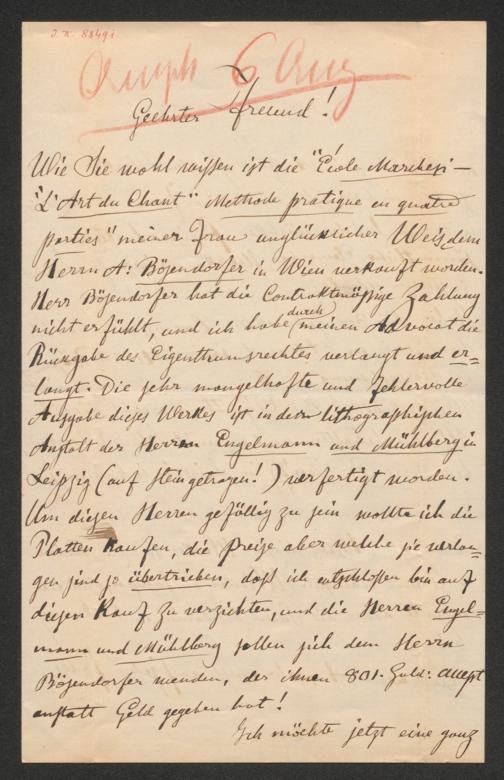 J. N. 8849i
Emph 6 Aug
Geehrter Freund!
Wie Sie wohl wissen ist die "École Marchesi –
"L'Art du Chant" Methode pratique en quatre
parties" meiner Frau unglücklicher Weis dem
Herrn A: Bösendorfer in Wien verkauft worden.
Herr Bösendorfer hat die Contraktmössige Zahlung
nicht erfühlt, und ich habe durch meinen Advocat die
Rückgabe des Eigenthumsrechtes verlangt und er=
langt. Die sehr mangelhafte und fehlervolle
Ausgabe dieses Werkes ist in dem lithographischen
Anstalt der Herren Engelmann und Mühlberg in
Leipzig (auf Stein getragen!) verfertigt worden.
Um diesen Herren geföllig zu sein wollte ich die
Platten kaufen, die Preise aber welche sie verlan-
gen sind so übertrieben, daß ich entschlossen bin auf
diesen Kauf zu verzichten, und die Herren Engel=
mann und Mühlberg sollen sich dem Herrn
Bösendorfer wenden, der ihnen 801. Guld: accept
anstatt Geld gegeben hat!
Ich möchte jetzt eine ganz